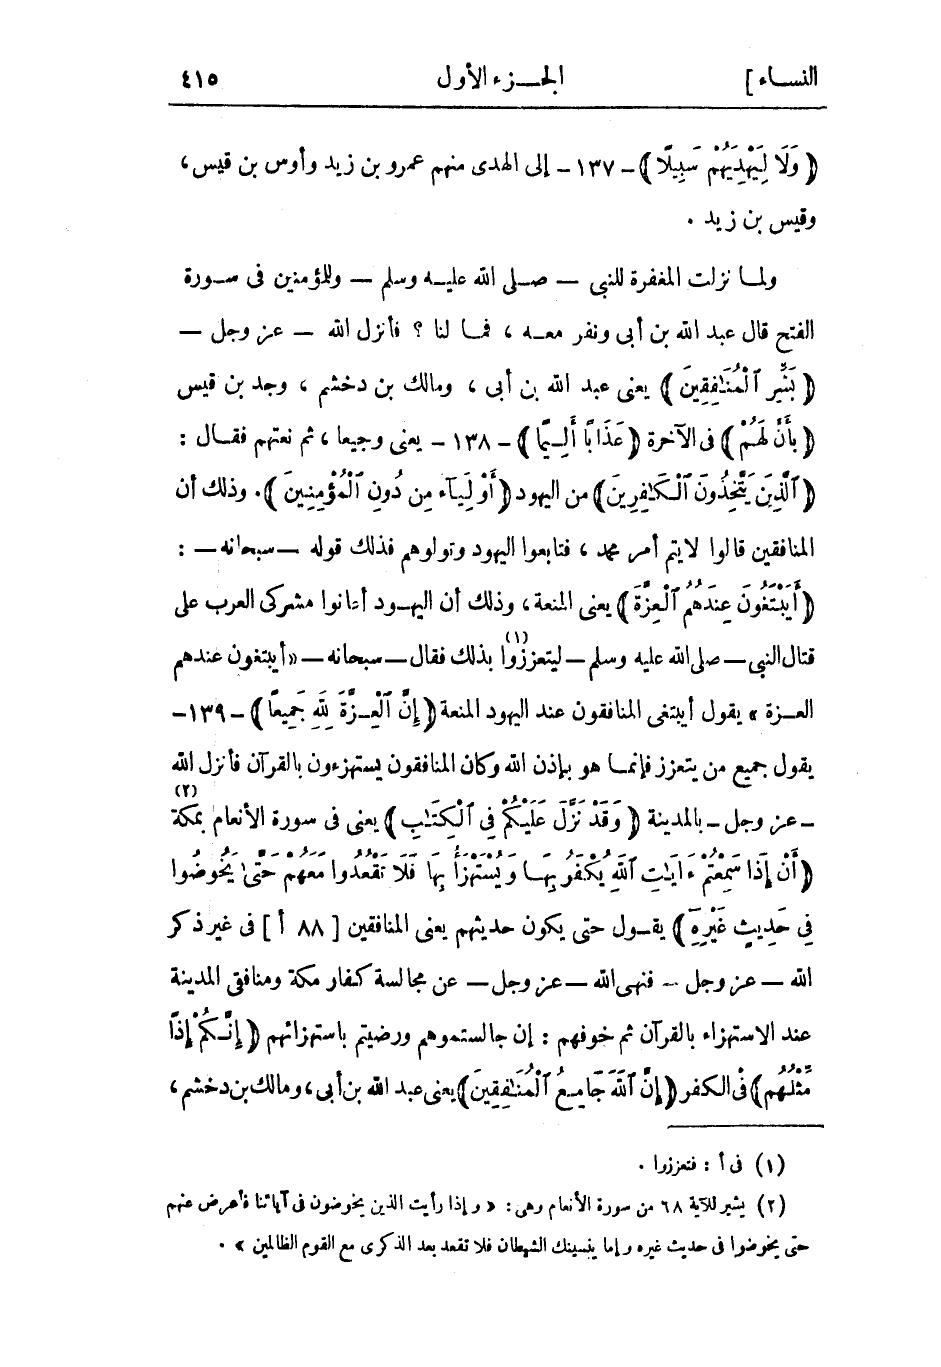 النساء ] الجزء الأول ٤١٥
﴿ وَلَا لِيَهْدِيَهُمْ سَبِيلًا ﴾ - ١٣٧ - إلى الهدى منهم عمرو بن زيد وأوس بن قيس ،
وقيس بن زيد .
ولما نزلت المغفرة للنبى — صلى الله عليه وسلم — وللمؤمنين فى سورة
الفتح قال عبد الله بن أبى ونفر معه ، فما لنا ؟ فأنزل الله — عز وجل —
﴿ بَشِّرِ ٱلْمُنَٰفِقِينَ ﴾ يعنى عبد الله بن أبى ، ومالك بن دخشم ، وجد بن قيس
﴿ بِأَنَّ لَهُمْ ﴾ فى الآخرة ﴿ عَذَابًا أَلِيمًا ﴾ - ١٣٨ - يعنى وجيعا ، ثم نعتهم فقال :
﴿ ٱلَّذِينَ يَتَّخِذُونَ ٱلْكَٰفِرِينَ ﴾ من اليهود ﴿ أَوْلِيَآءَ مِن دُونِ ٱلْمُؤْمِنِينَ ﴾ . وذلك أن
المنافقين قالوا لا يتم أمر محمد ، فتابعوا اليهود وتولوهم فذلك قوله — سبحانه — :
﴿ أَيَبْتَغُونَ عِندَهُمُ ٱلْعِزَّةَ ﴾ يعنى المنعة ، وذلك أن اليهود أعانوا مشركى العرب على
قتال النبى — صلى الله عليه وسلم — ليتعززوا (١) بذلك فقال — سبحانه — « أيبتغون عندهم
العزة » يقول أيبتغى المنافقون عند اليهود المنعة ﴿ إِنَّ ٱلْعِزَّةَ لِلَّهِ جَمِيعًا ﴾ - ١٣٩ -
يقول جميع من يتعزز فإنما هو بإذن الله وكان المنافقون يستهزءون بالقرآن فأنزل الله
- عز وجل - بالمدينة ﴿ وَقَدْ نَزَّلَ عَلَيْكُمْ فِى ٱلْكِتَٰبِ ﴾ يعنى فى سورة الأنعام بمكة (٢)
﴿ أَنْ إِذَا سَمِعْتُمْ ءَايَٰتِ ٱللَّهِ يُكْفَرُ بِهَا وَيُسْتَهْزَأُ بِهَا فَلَا تَقْعُدُوا مَعَهُمْ حَتَّىٰ يَخُوضُوا
فِى حَدِيثٍ غَيْرِهِ ﴾ يقول حتى يكون حديثهم يعنى المنافقين [ ٨٨ أ ] فى غير ذكر
الله — عز وجل — فنهى الله — عز وجل — عن مجالسة كفار مكة ومنافقى المدينة
عند الاستهزاء بالقرآن ثم خوفهم : إن جالستموهم ورضيتم باستهزائهم ﴿ إِنَّكُمْ إِذًا
مِّثْلُهُمْ ﴾ فى الكفر ﴿ إِنَّ ٱللَّهَ جَامِعُ ٱلْمُنَٰفِقِينَ ﴾ يعنى عبد الله بن أبى ، ومالك بن دخشم ،
(١) فى أ : فتعززوا .
(٢) يشير للآية ٦٨ من سورة الأنعام وهى : « وإذا رأيت الذين يخوضون فى آياتنا فأعرض عنهم
حتى يخوضوا فى حديث غيره وإما ينسينك الشيطان فلا تقعد بعد الذكرى مع القوم الظالمين » .